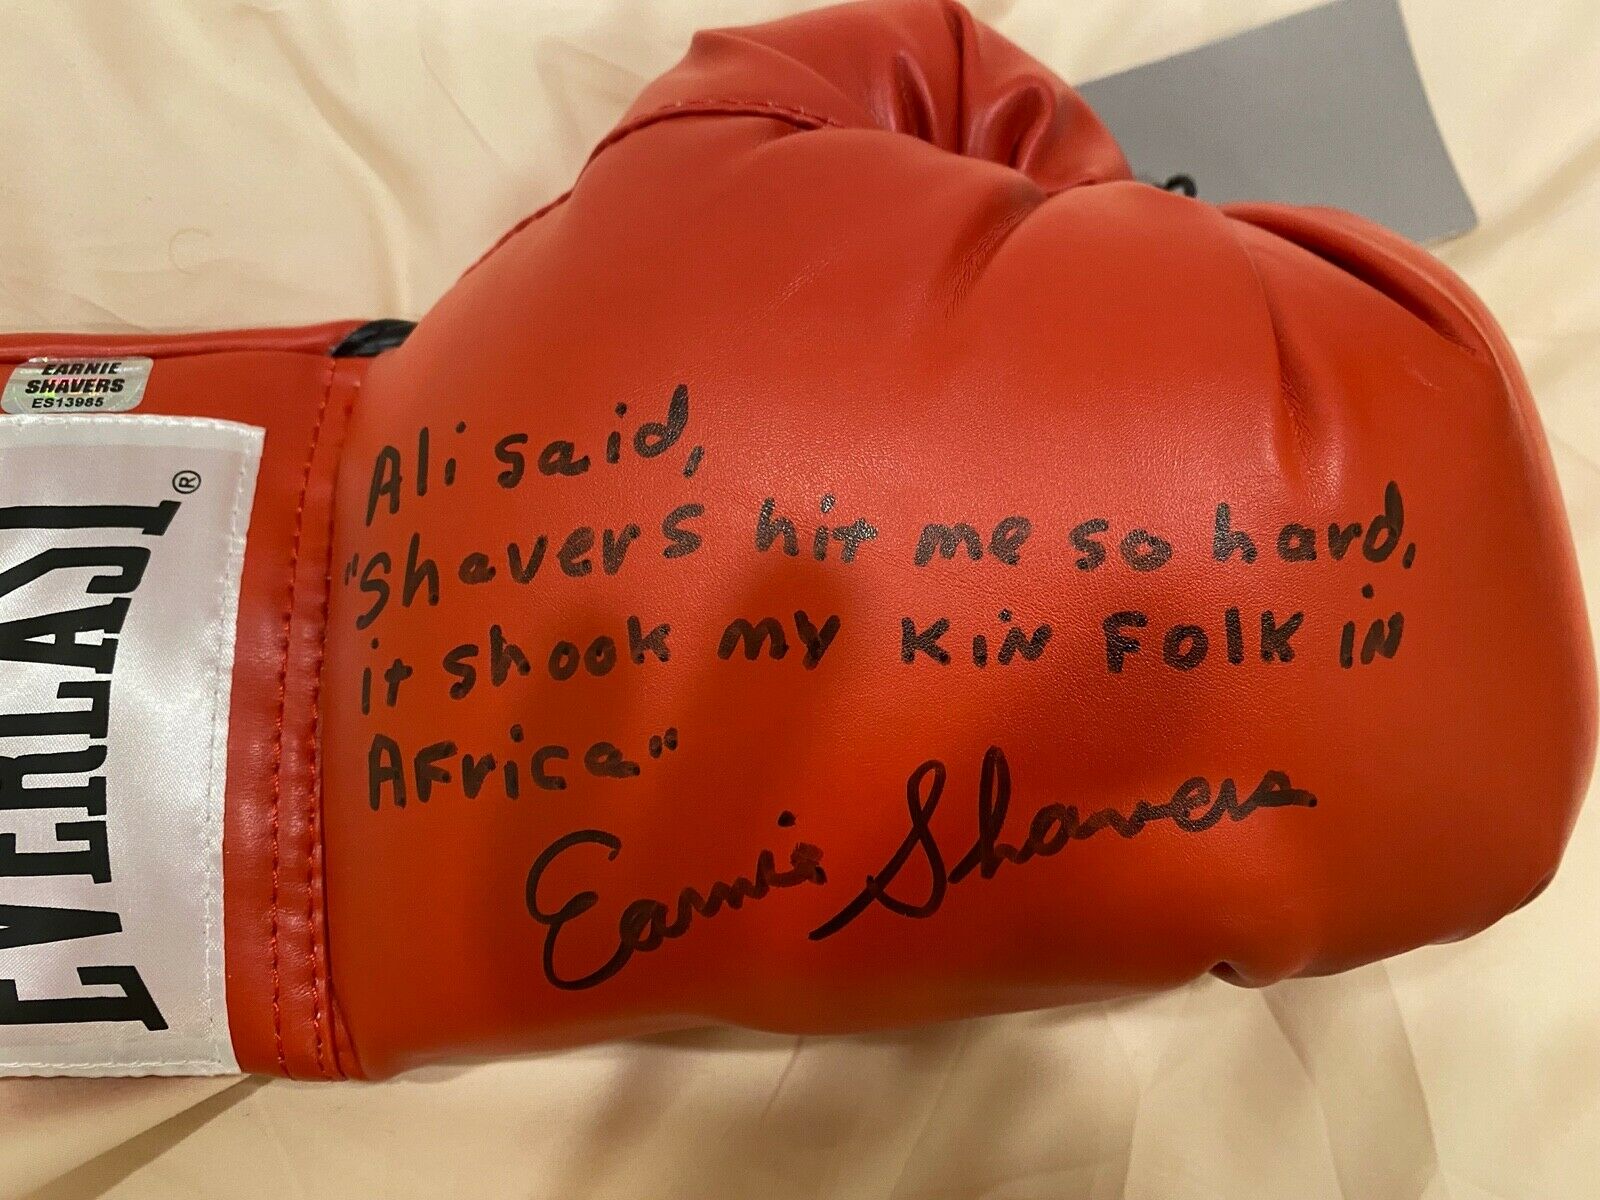 EARNIE
SHAVERS
ES13985
EVERLAST®
Ali said,
"Shavers hit me so hard,
it shook my KiN FOlK iN
AFrica"
Earnie Shavers